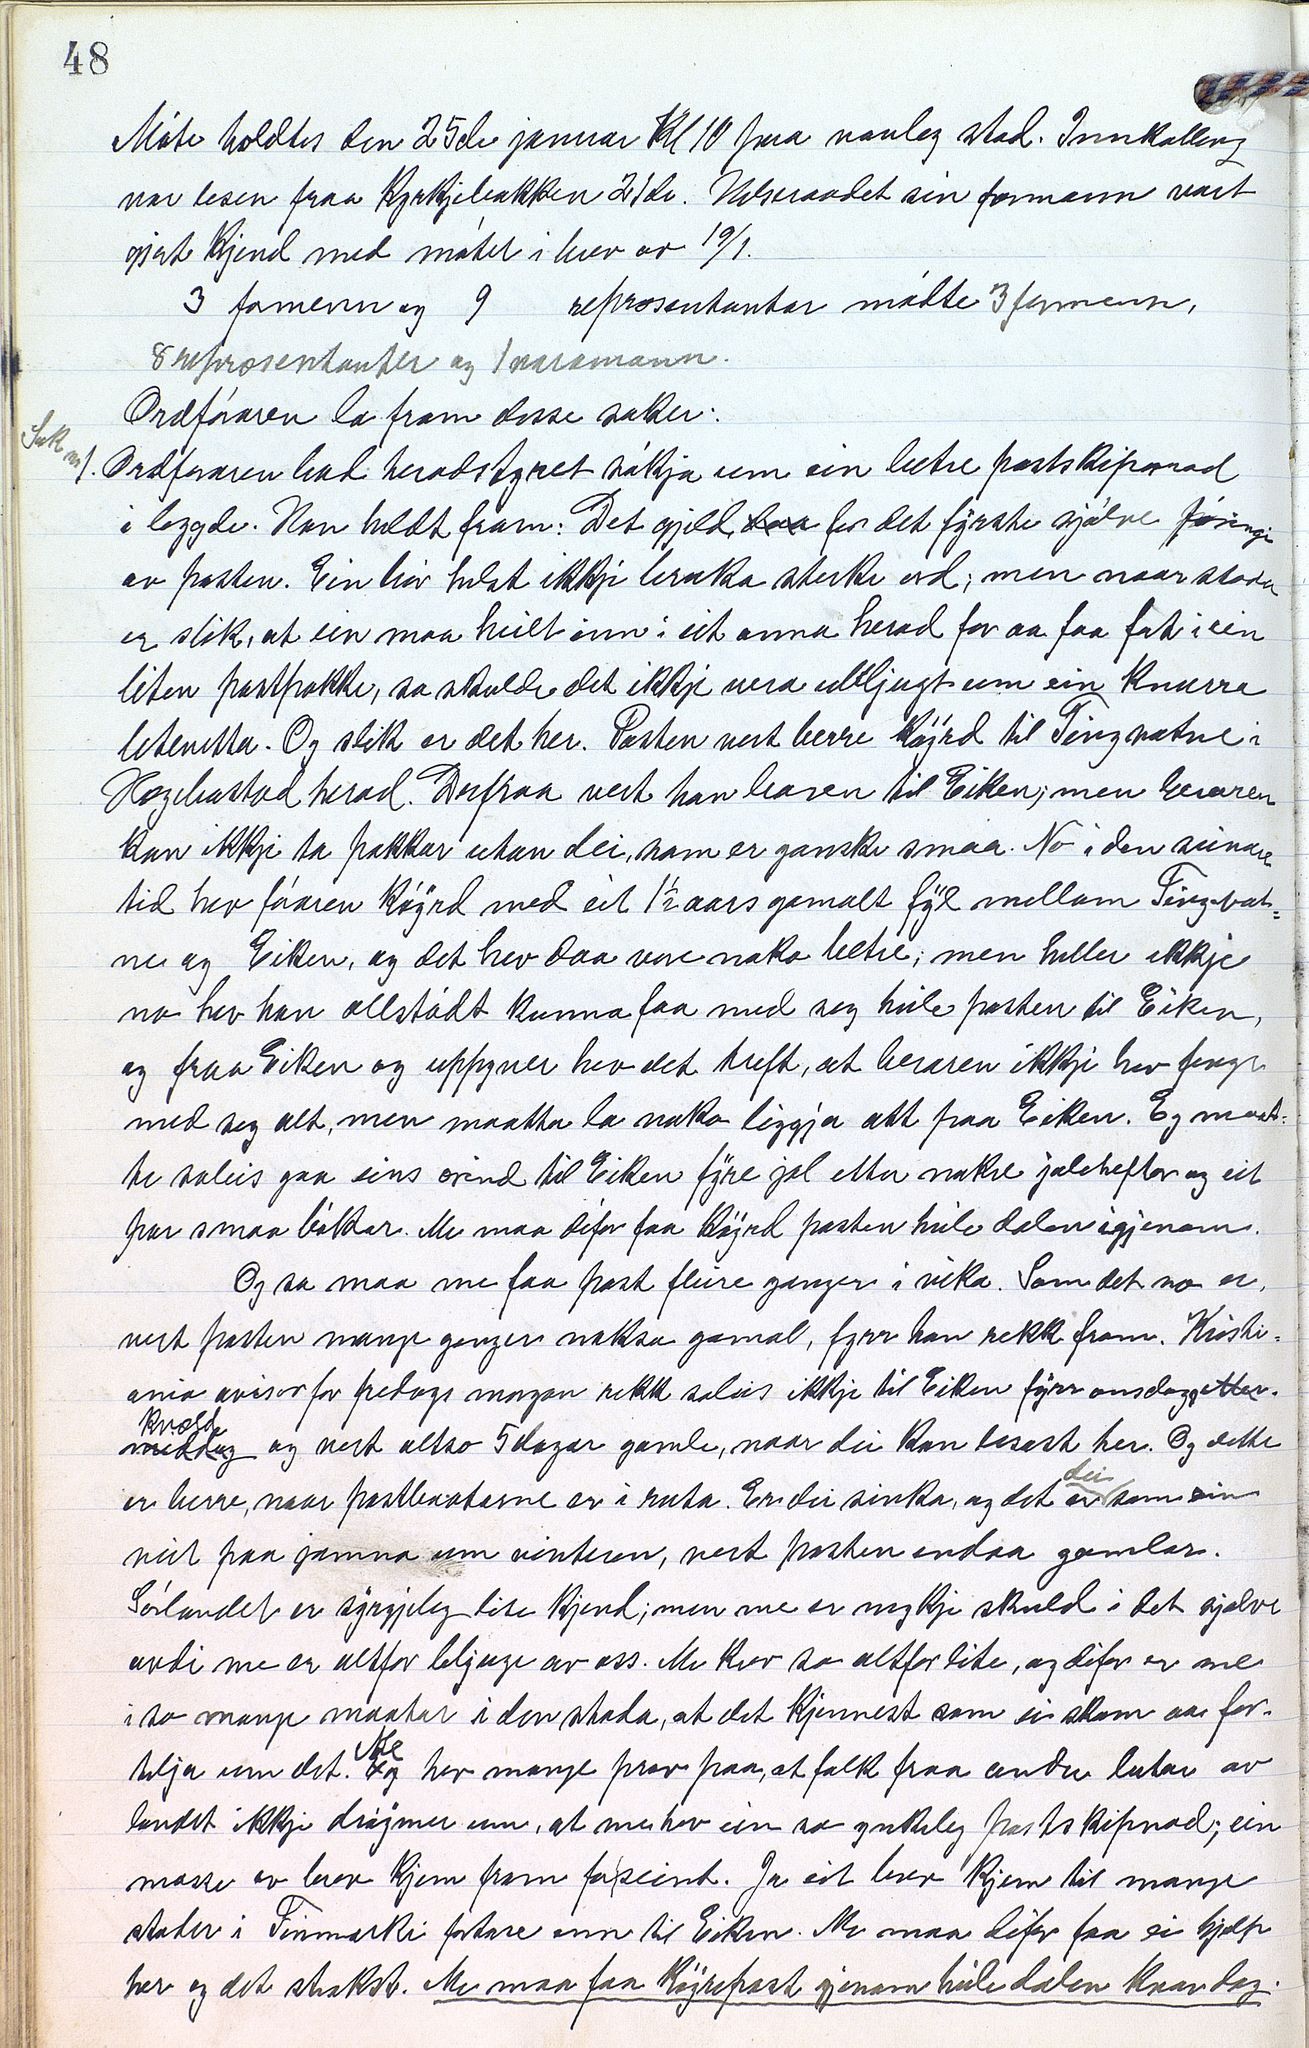 48
Móte holdtes den 25de januar Kl 10 paa vanleg stad. Innkalling
var lesen fraa Kyrkjebakken 21de. Helseraadet sin formann vart
gjort kjend med mótet i brev av 19/1.
3 formenn og 9 representantar mótte 3 formenn,
8 representanter og 1 varamann.
Ordfóraren la fram desse saker:
Sak nr 1. Ordfóraren bad heradstyret sókja um ein betre postskipnad
i bygde. Han heldt fram: Det gjeld daa for det fyrste sjólve fóringi
av posten. Ein bór helst ikkje bruka sterke ord; men naar stoda
er slik, at ein maa heilt inn i eit anna herad for aa faa fat i ein
liten postpakke, so skulde det ikkje vera ubljugt um ein knurra
litevetta. Og slik er det her. Posten vert berre kóyrd til Tingvatne i
Hægebostad herad. Derfraa vert han boren til Eiken; men beraren
kan ikkje ta pakkar utan dei, som er ganske smaa. No i den seinare
tid hev fóraren kóyrd med eit 1½ aars gamalt fyl mellom Tingvat=
ne og Eiken, og det hev daa vore noko betre; men heller ikkje
no hev han allstódt kunna faa med seg heile posten til Eiken,
og fraa Eiken og uppyver hev det treft, at beraren ikkje hev fengi
med seg alt, men maatta la noko liggja att paa Eiken. Eg maat-
te soleis gaa eins ærend til Eiken fyre jol etter nokre jolehefter og eit
par smaa bókar. Me maa difor faa kóyrd posten heile dalen igjenom.
Og so maa me faa post fleire gonger i vika. Som det no er,
vert posten mange gonger nokso gamal, fyrr han rekk fram. Kristi=
ania aviser for fredags morgon rekk soleis ikkje til Eiken fyrr onsdags etter-
middag kveld og vert altso 5 dagar gamle, naar dei kan lesast her. Og dette
er berre, naar postbaatarne er i ruta. Er dei seinka, og det er dei som ein
veit paa jamna um vinteren, vert posten endaa gamlare.
Sórlandet er syrgjeleg lite kjend; men me er mykje skuld i det sjølve
avdi me er altfor bljuge av oss. Me krev so altfor lite, og difor er me
i so mange maatar i den stoda, at det kjennest som ei skam aa for-
telja um det. Eg Me hev mange prov paa, at folk fraa andre lutar av
landet ikkje dróymer um, at me hev ein so ynkeleg postskipnad; ein
masse av brev kjem fram for seint. Ja eit brev kjem til mange
stader i Finmarki fortare enn til Eiken. Me maa difor faa ei hjelp
her og det strakst. Me maa faa kóyrepost gjenom heile dalen kvar dag.